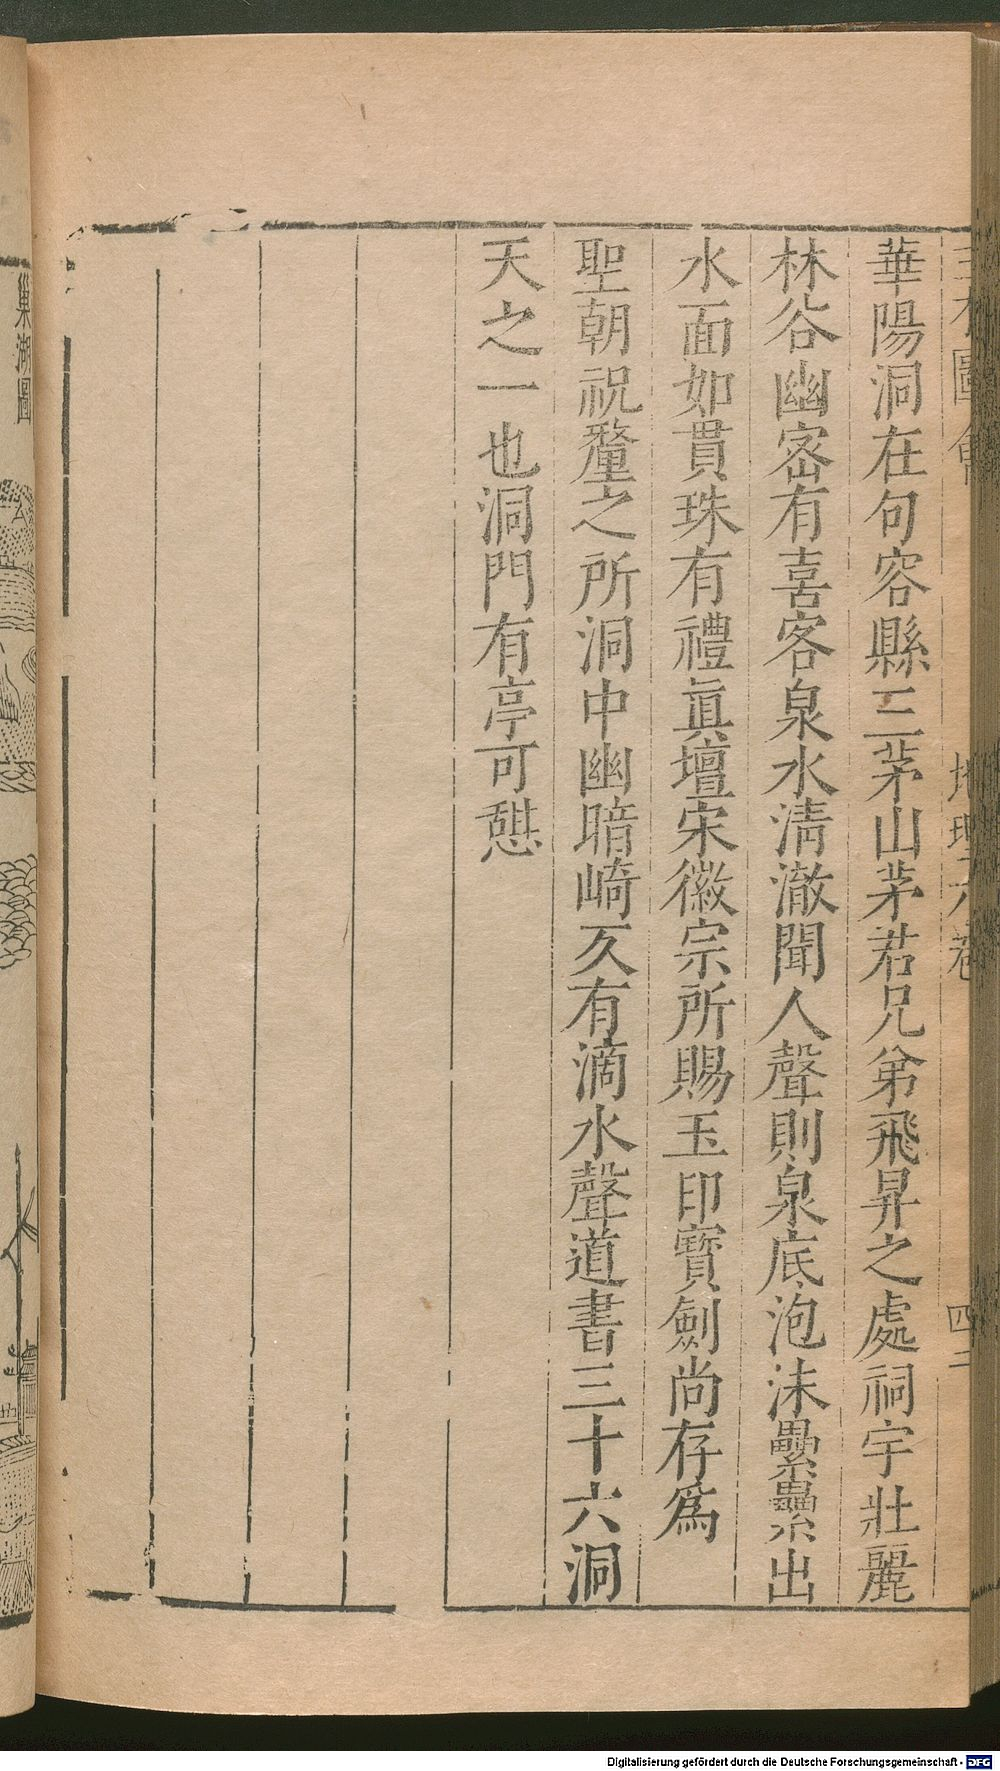 三才圖會 地理六卷 四二
華陽洞在句容縣三茅山茅君兄弟飛昇之處祠宇壯麗
林谷幽宻有喜客泉水清澈聞人聲則泉底泡沫纍纍出
水面如貫珠有禮眞壇宋徽宗所賜玉印寳劍尚存爲
聖朝祝釐之所洞中幽暗崎㞃有滴水聲道書三十六洞
天之一也洞門有亭可憇
巢湖圖
Digitalisierung gefördert durch die Deutsche Forschungsgemeinschaft - DFG